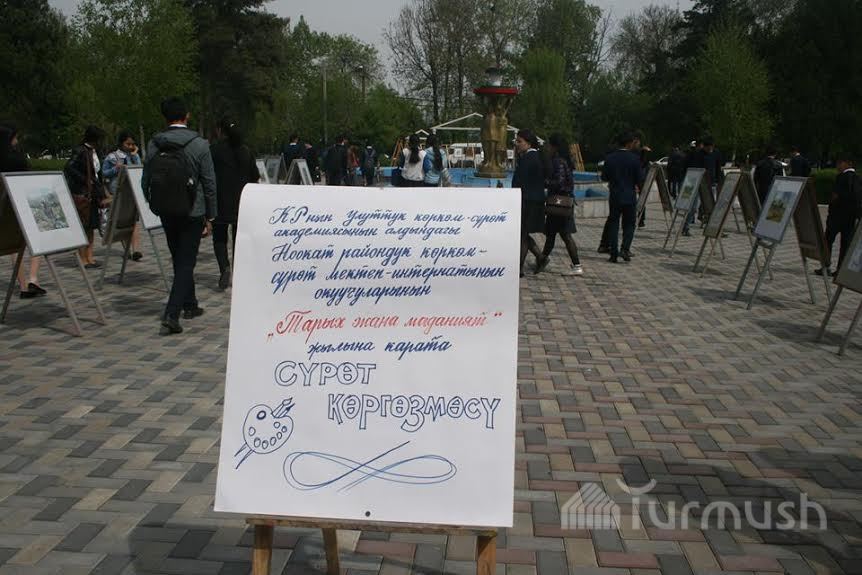 КРнын улуттук көркөм-сүрөт
академиясынын алдындагы
Ноокат райондук көркөм-
сүрөт мектеп-интернатынын
окуучуларынын
„Тарых жана маданият“
жылына карата
СҮРӨТ
КӨРГӨЗМӨСҮ
Turmush